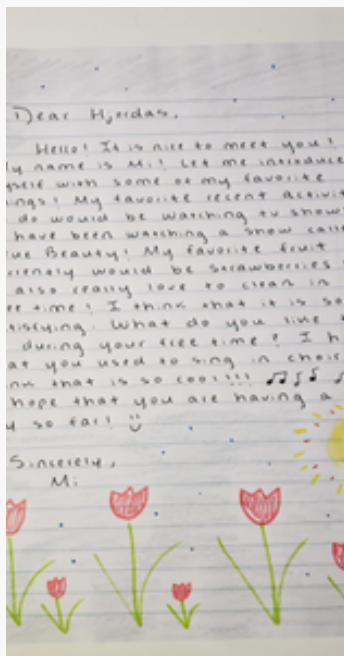 Dear Hjordas,
Hello! It is nice to meet you!
y name is Mi! Let me introduce
yself with some of my favorite
ings! My favorite recent activit
do would be watching tv show
have been watching a show calle
ue Beauty! My favorite fruit
rently would be strawberries
also really love to clean in
ee time! I think that it is so
tisfying. What do you like
during your free time? I h
at you used to sing in choir
nk that is so cool!!!
hope that you are having a
y so far!
Sincerely,
Mi